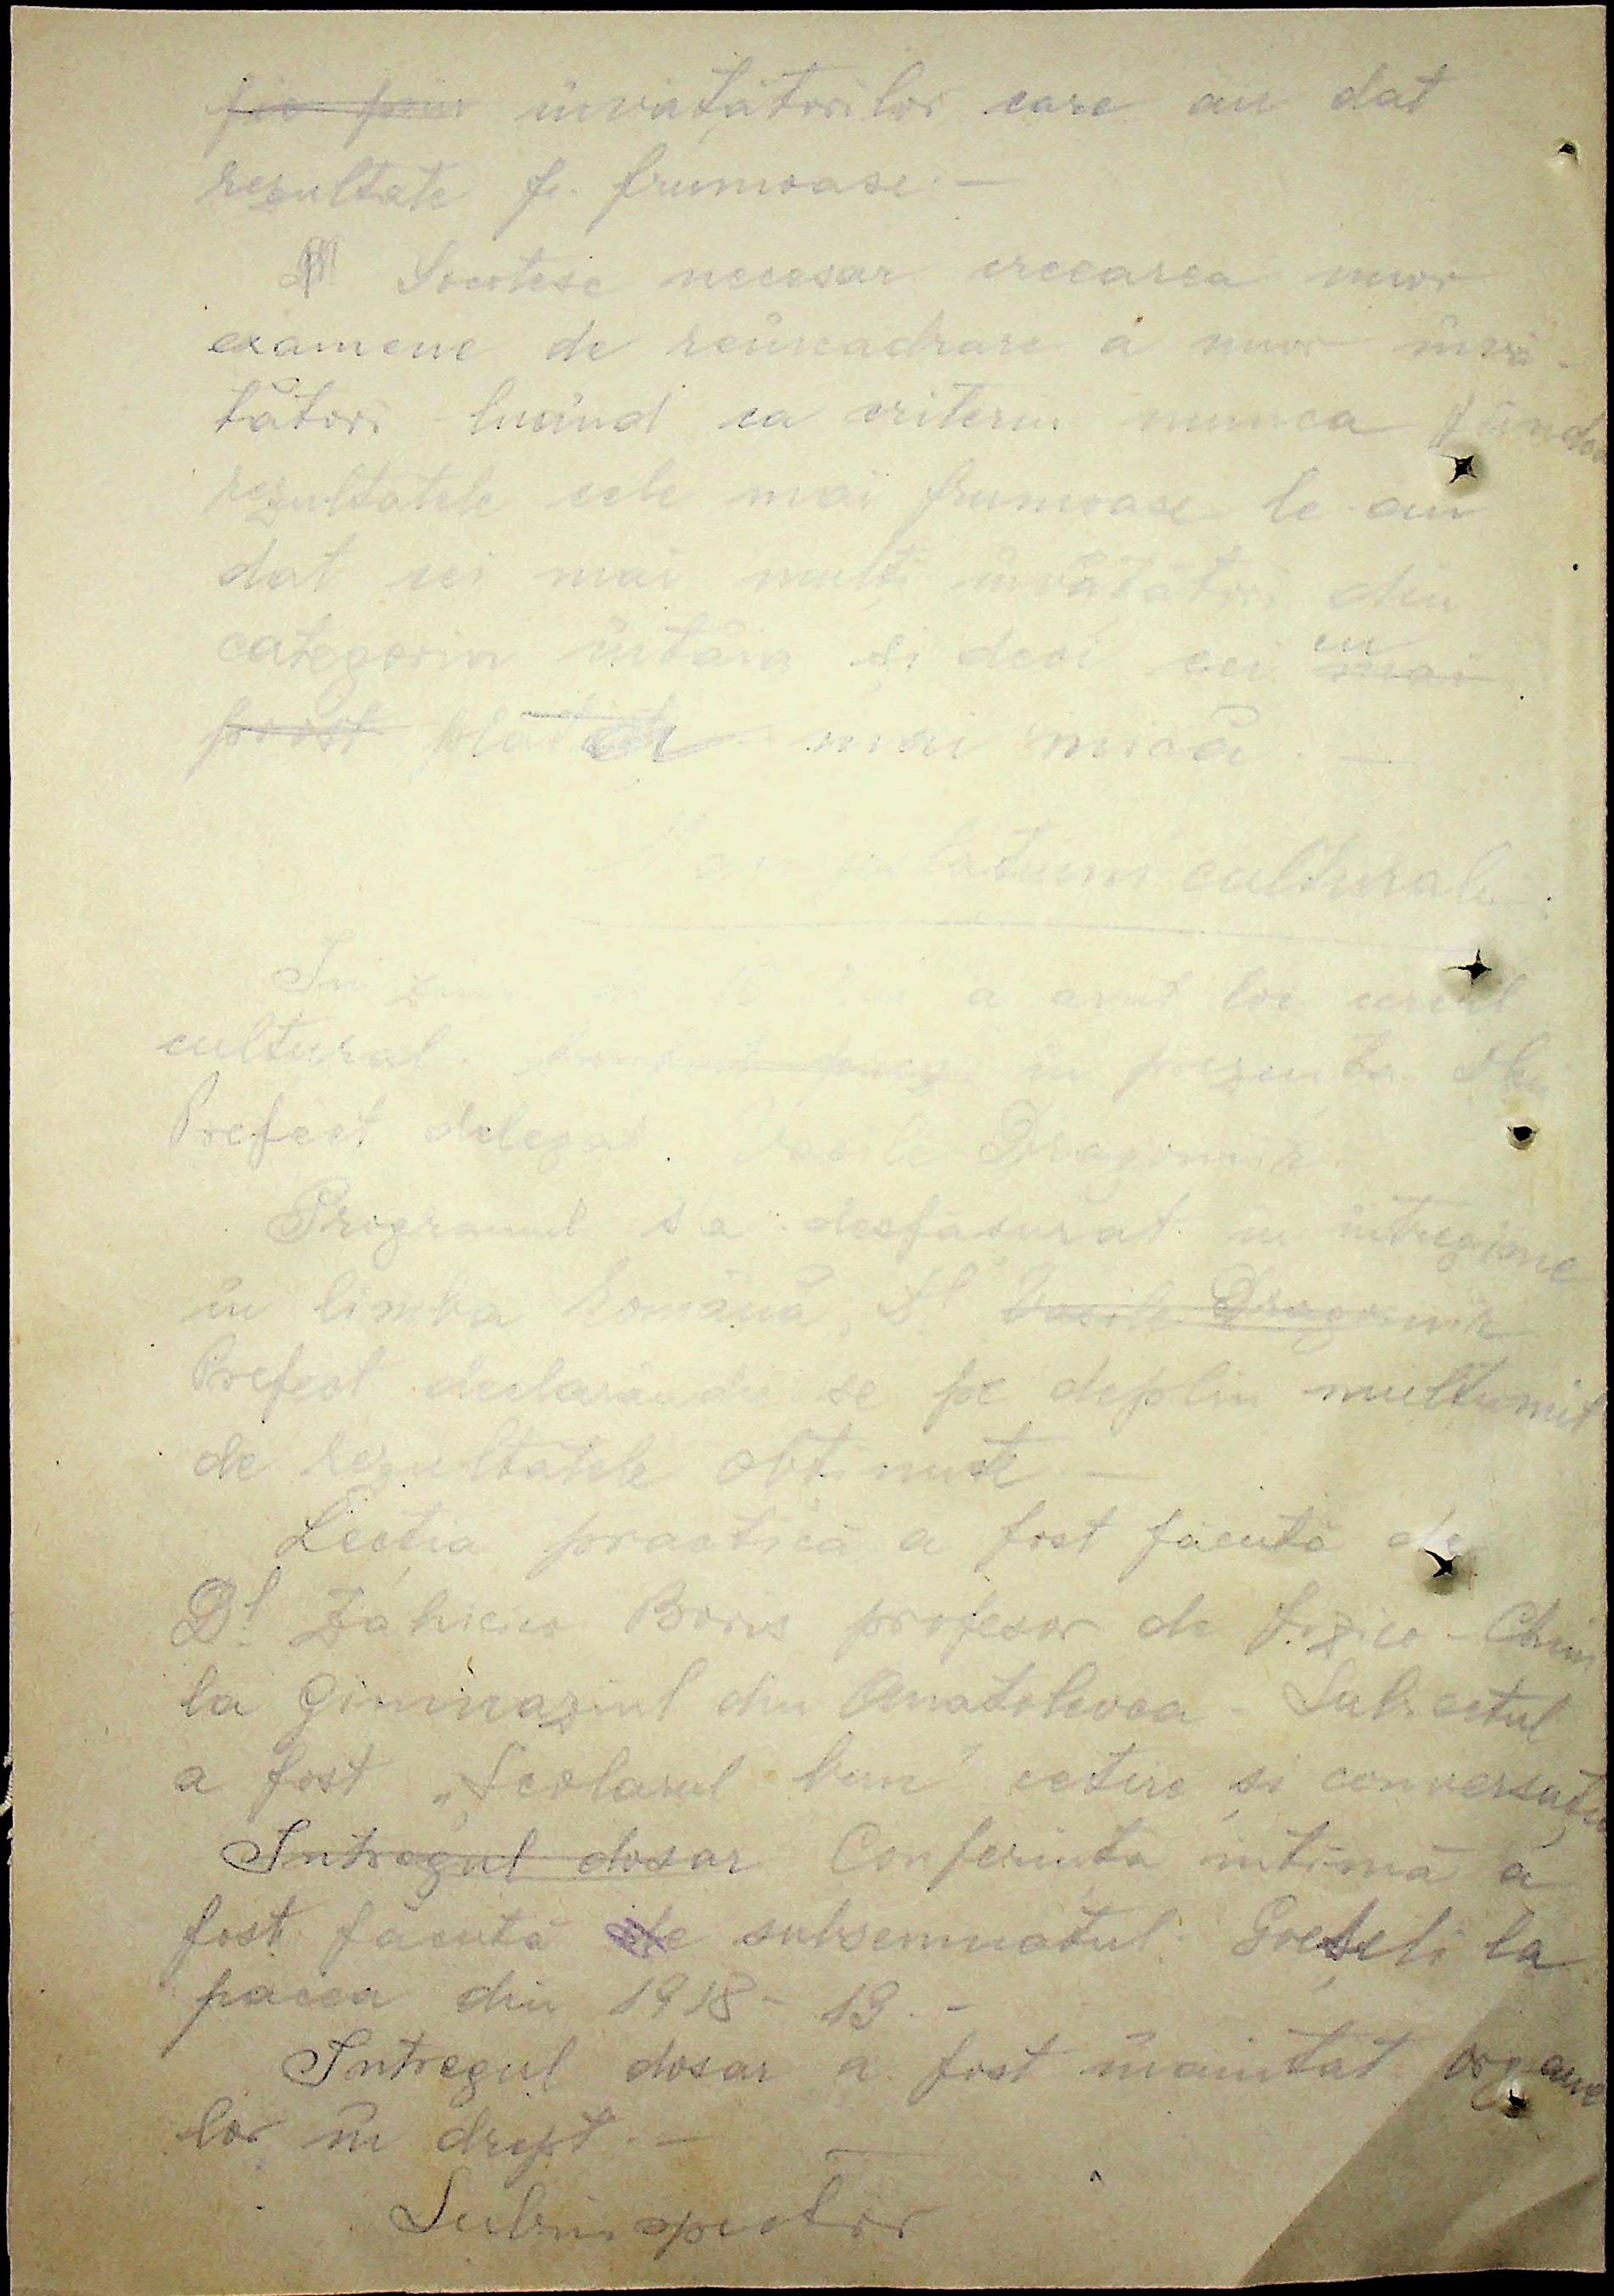 învățătorilor care au dat
rezultate f. frumoase. —
Socotesc necesar creearea unor
examene de reîncadrare a unor învă-
țători luând ca criteriu munca
rezultatele cele mai frumoase le-au
dat cei mai mulți învățători din
categoria întâia și deși cei cu ~~mai~~
~~prost~~ mai mică. —
culturale
In a avut loc cercul
cultural în prezența Dlui
Prefect delegat Vasile Dragomir.
Programul s'a desfășurat în întregime
în limba Română, Dl ~~Vasile Dragomir~~
Prefect declarându-se pe deplin mulțumit
de rezultatele obținute —
Lecția practică a fost făcută de
Dl. Boris profesor de fizico-Chim
la Gimnaziul din Anatolevca - Subiectul
a fost „Școlarul bun" cetire și conversație
~~Intregul dosar~~ Conferința intimă a
fost făcută de subsemnatul: Greșeli la
pacea din 1918-19. -
Intregul dosar a fost înaintat organe
lor în drept. —
Subinspector